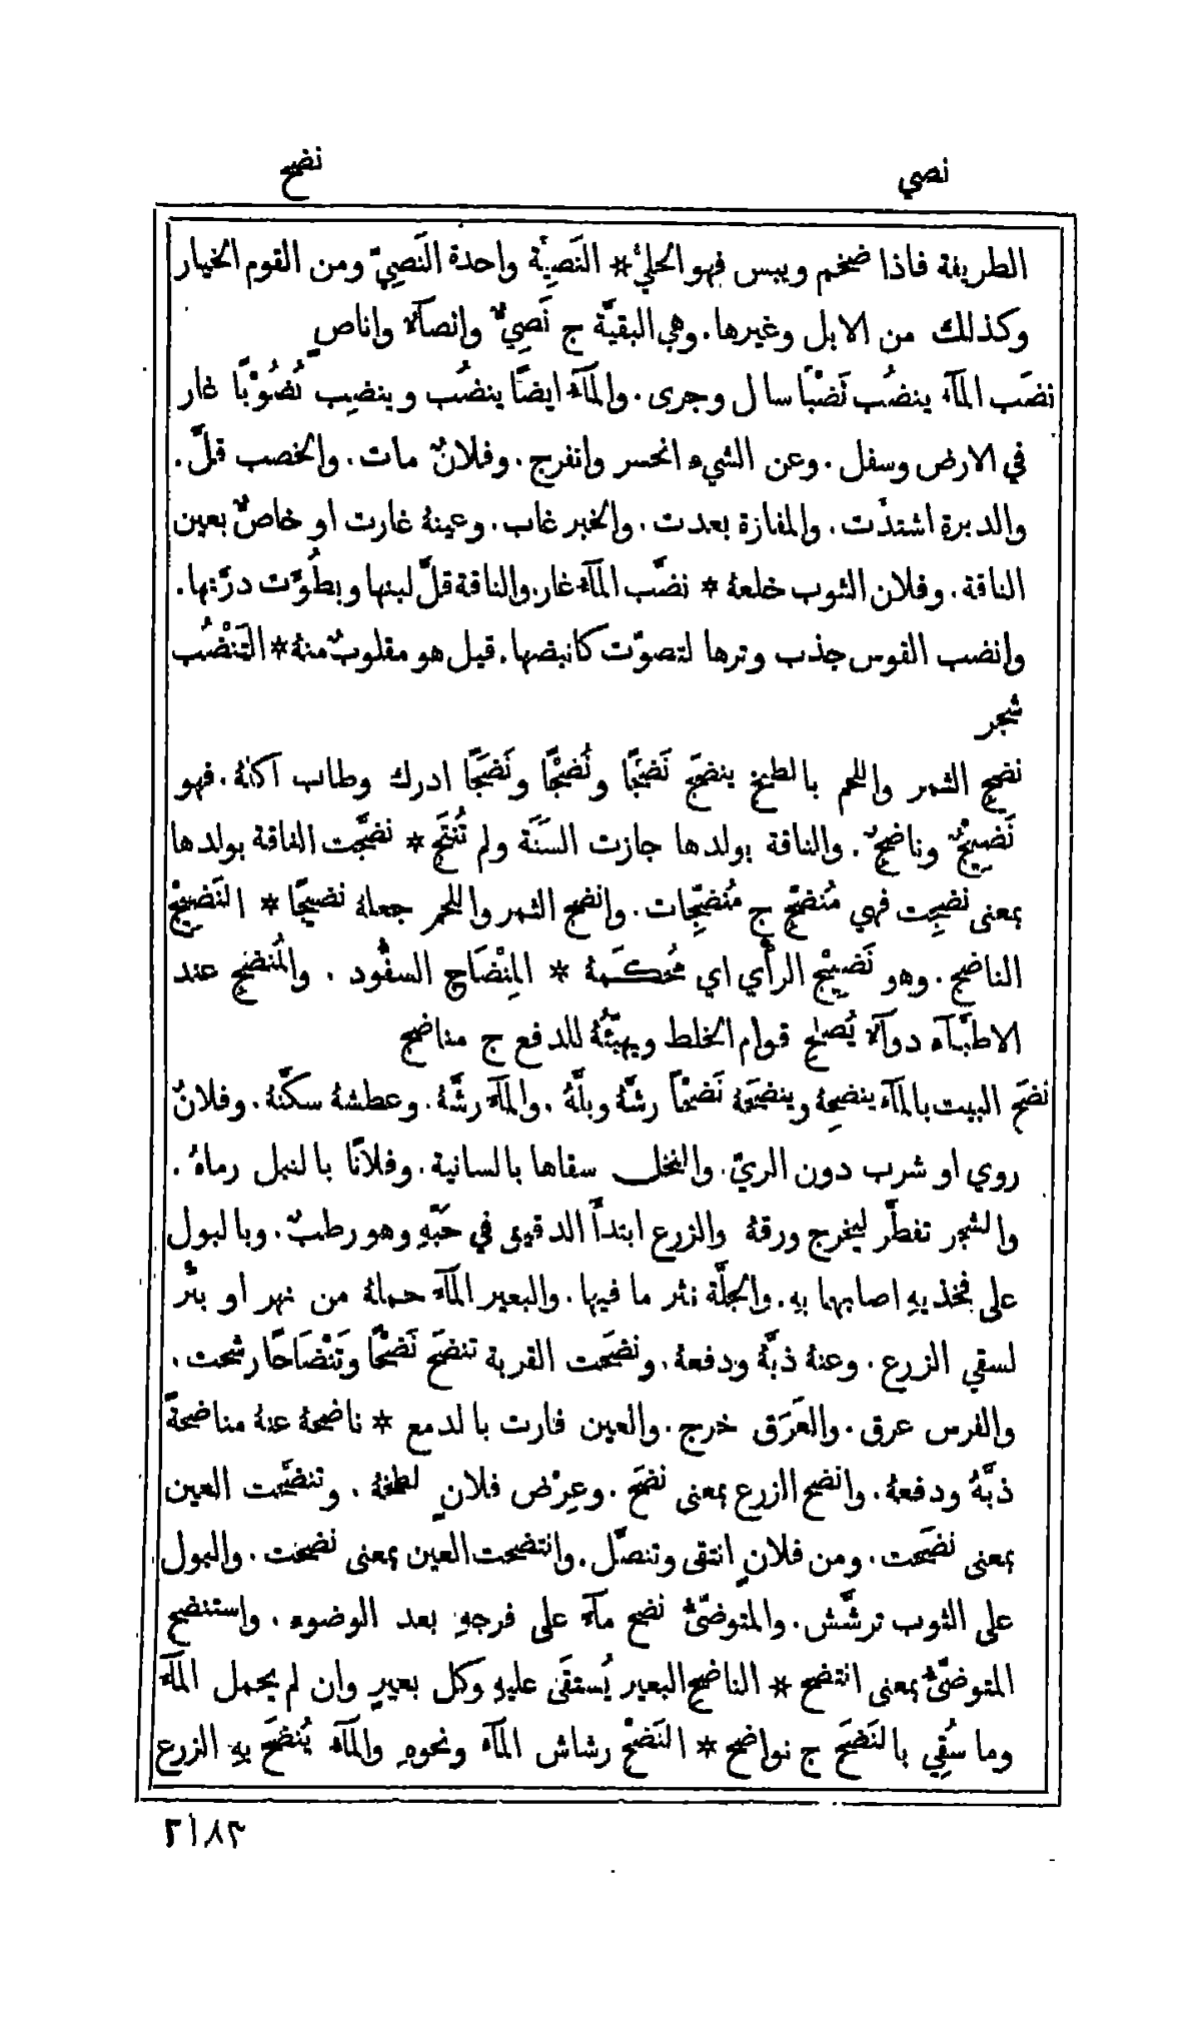 نصي
نضح
الطريفة فاذا ضخم ويبس فهو الحليّ * النَصِيَّة واحدة النَصِيّ ومن القوم الخيار
وكذلك من الابل وغيرها. وهي البقيَّة ج نَصِيٌّ وانصآءٌ واناصٍ
نضَب المآءُ ينضُب نَضْبًا سال وجرى. والمآءُ ايضًا ينضُب وينضِب نُضُوْبًا غار
في الارض وسفل. وعن الشيء انحسر وانفرج. وفلانٌ مات. والخصب قلَّ.
والدبرة اشتدَّت. والمفازة بعدت. والخبر غاب. وعينهُ غارت او خاصٌّ بعين
الناقة. وفلان الثوب خلعهُ * نضَّب المآءُ غار. والناقة قلَّ لبنها وبطُؤَت درَّتها.
وانضب القوس جذب وترها لتصوّت كانبضها. قيل هو مقلوبٌ منهُ * التَنْضُب
شجر
نضِج الثمر واللحم بالطبخ ينضَج نَضْجًا ونُضْجًا ونَضَجًا ادرك وطاب اكلهُ. فهو
نَضِيْجٌ وناضِجٌ. والناقة بولدها جازت السَنَة ولم تُنتَج * نضَّجت الناقة بولدها
بمعنى نضِجت فهي مُنضِّج ج مُنضِّجات. وانضج الثمر واللحمر جعلهُ نضيجًا * النَضِيْج
الناضج. وهو نَضِيْج الرأْي اي مُحكَمهُ * المِنْضَاج السفُّود. والمُنضِج عند
الاطبَّآء دوآءٌ يُصلِح قوام الخلط ويهيّئُهُ للدفع ج مناضج
نضَح البيت بالمآء ينضِحهُ وينضَحهُ نَضْحًا رشَّهُ وبلَّهُ. والمآءَ رشَّهُ. وعطشهُ سكَّنهُ. وفلانٌ
روي او شرب دون الريّ. والنخل سقاها بالسانية. وفلانًا بالنبل رماهُ.
والشجر تفطَّر ليخرج ورقهُ والزرع ابتدأَ الدقيق في حَبّهِ وهو رطبٌ. وبالبول
على فخذيهِ اصابهما بهِ. والجلَّة نثر ما فيها. والبعير المآءَ حملهُ من نهر او بئْر
لسقي الزرع. وعنهُ ذبَّهُ ودفعهُ. ونضَحت القربة تنضَح نَضْحًا وتَنْضَاحًا رشحت.
والفرس عرق. والعَرَق خرج. والعين فارت بالدمع * ناضحهُ عنهُ مناضحةً
ذبَّهُ ودفعهُ. وانضح الزرع بمعنى نضَح. وعِرْض فلانٍ لطخهُ. وتنضَّحت العين
بمعنى نضَحت. ومن فلانٍ انتقى وتنصَّل. وانتضحت العين بمعنى نضحت. والبول
على الثوب ترشَّش. والمتوضّئُ نضح مآءً على فرجهِ بعد الوضوء. واستنضح
المتوضّئُ بمعنى انتضح * الناضح البعير يُستقَى عليهِ وكل بعيرٍ وان لم يحمل المآءَ
وما سُقِي بالنَضَح ج نواضح * النَضْح رشاش المآء ونحوهِ والمآءُ يُنضَح بهِ الزرع
٢١٨٣